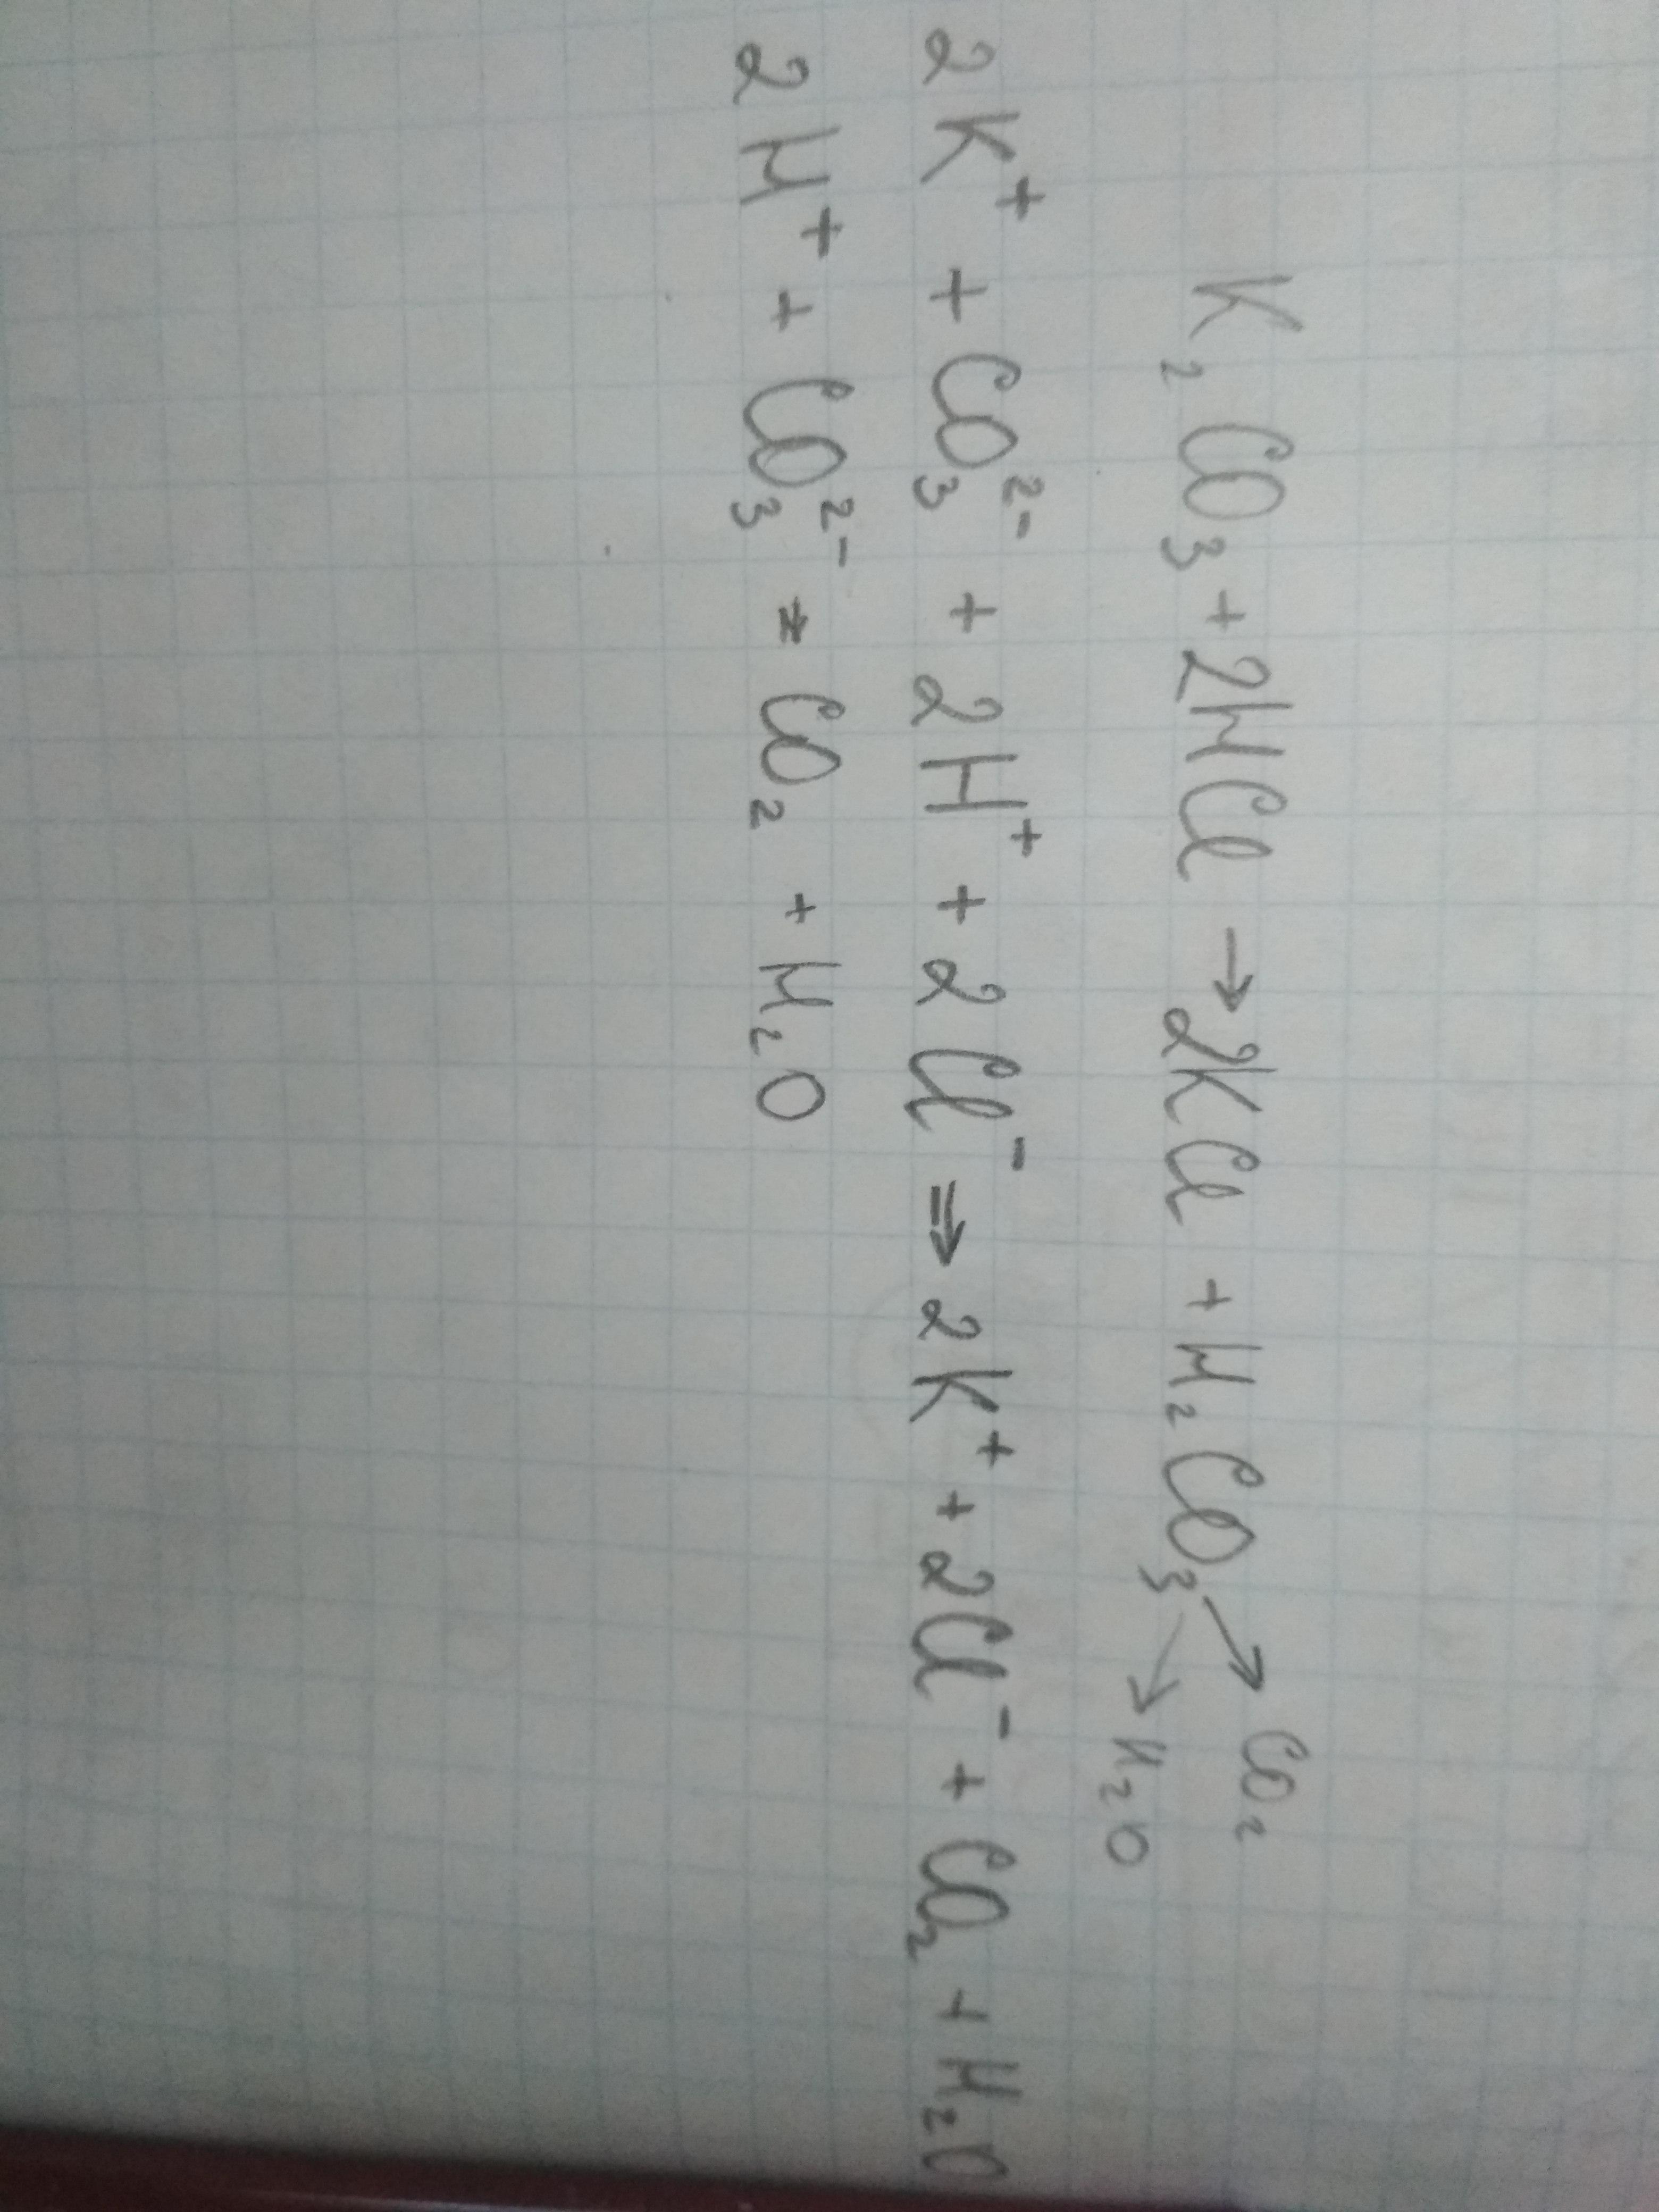 K₂CO₃ + 2HCl → 2KCl + H₂CO₃ → CO₂
→ H₂O
2K⁺ + CO₃²⁻ + 2H⁺ + 2Cl⁻ ⇒ 2K⁺ + 2Cl⁻ + CO₂ + H₂O
2H⁺ + CO₃²⁻ ⇒ CO₂ + H₂O